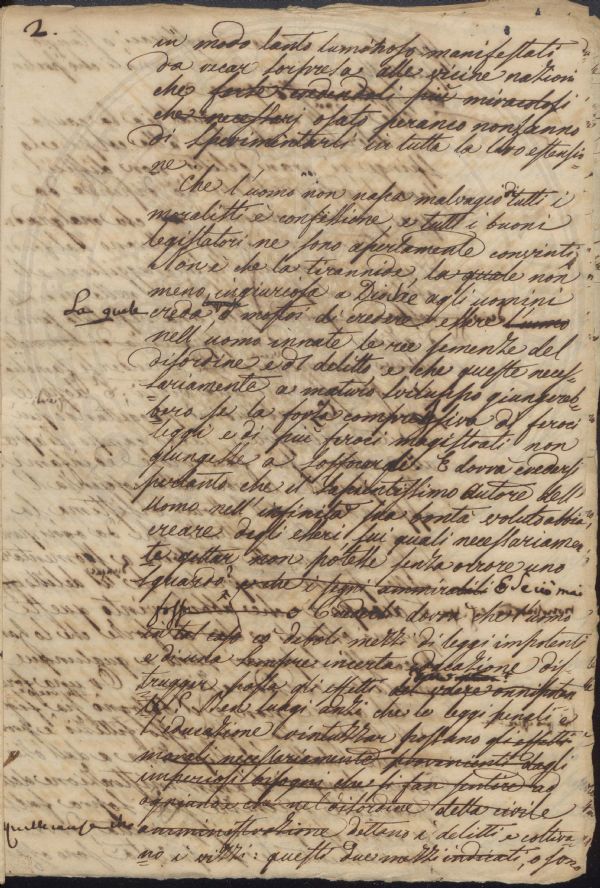 2.
in modo tanto luminoso manifestati
da recar sorpresa alle vicine nazioni
che forse credendoli più miracolosi
che necessarj osato peranco non hanno
di sperimentarli in tutta la loro estensio=
ne
Che l'uomo non nasca malvagio tutti i
moralisti è confessione e tutti i buoni
legislatori ne sono apertamente convinti
Non è che la tirannide, la quale non
meno ingiuriosa a Dio che agli uomini
La quale
creda o mostri di credere essere l'uomo
nell'uomo innate le ree semenze del
disordine e del delitto e che queste neces=
sariamente a maturo sviluppo giungereb=
bero se la forza compressiva di feroci
leggi e di più feroci magistrati non
giungesse a soffocarle. E dovrà credersi
pertanto che il sapientissimo Autore dell'
uomo nell'infinita sua bontà voluto abbia
creare degli esseri sui quali necessariamen=
te gittar non potesse senza orrore uno
sguardo? E se ciò mai
o dovrà che l'uomo
in tal caso co deboli mezzi di leggi impotenti
e di una sempre incerta educazione dis=
trugger possa gli effetti del onnipoten
te? Ben lungi anzi che le leggi penali e
l'educazione vincer possano gli effetti
morali necessariamente provenienti dagli
imperiosi bisogni che si fan sentire ad
quelle cause che
ognuno e che nel disordine della civile
amministrazione dettano i delitti e coltiva
no i vizzi: questi due mezzi indicati, o sono